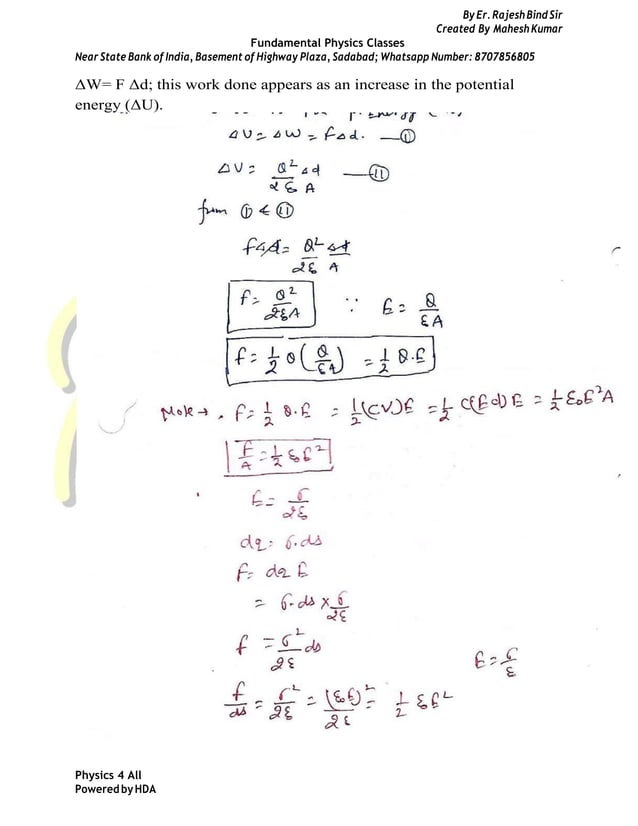 By Er. Rajesh Bind Sir
Created By Mahesh Kumar
Fundamental Physics Classes
Near State Bank of India, Basement of Highway Plaza, Sadabad; Whatsapp Number: 8707856805
ΔW= F Δd; this work done appears as an increase in the potential
energy (ΔU).
ΔU = ΔW = FΔd. — (I)
ΔU = Q²Δd / 2εA — (II)
from (I) & (II)
FΔd = Q² Δd / 2ε A
F = Q² / 2εA ∵ E = Q / εA
F = 1/2 Q (Q / εA) = 1/2 Q.E
Note → . F = 1/2 Q.E = 1/2 (CV)E = 1/2 C(Ed)E = 1/2 ε₀E²A
F/A = 1/2 εE²
E = σ / 2ε
dq = σ.ds
F = dq E
= σ.ds × σ / 2ε
F = σ² / 2ε ds
E = σ / ε
F/ds = σ² / 2ε = (ε₀E)² / 2ε = 1/2 εE²
Physics 4 All
Powered by HDA